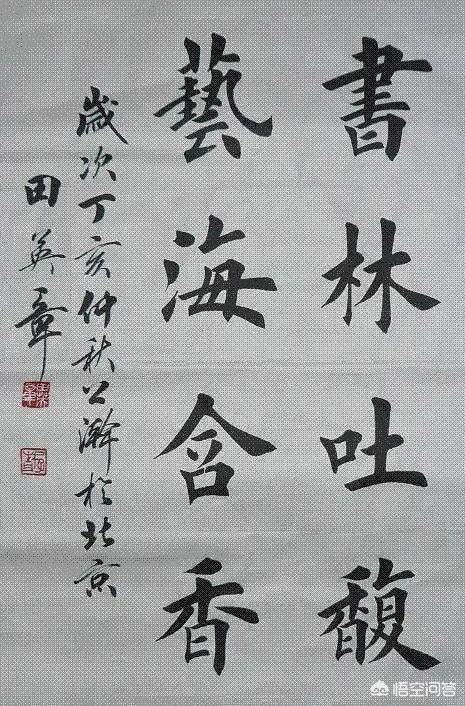 書林吐馥
藝海含香
歲次丁亥仲秋公瀚於北京
田英章
悟空问答